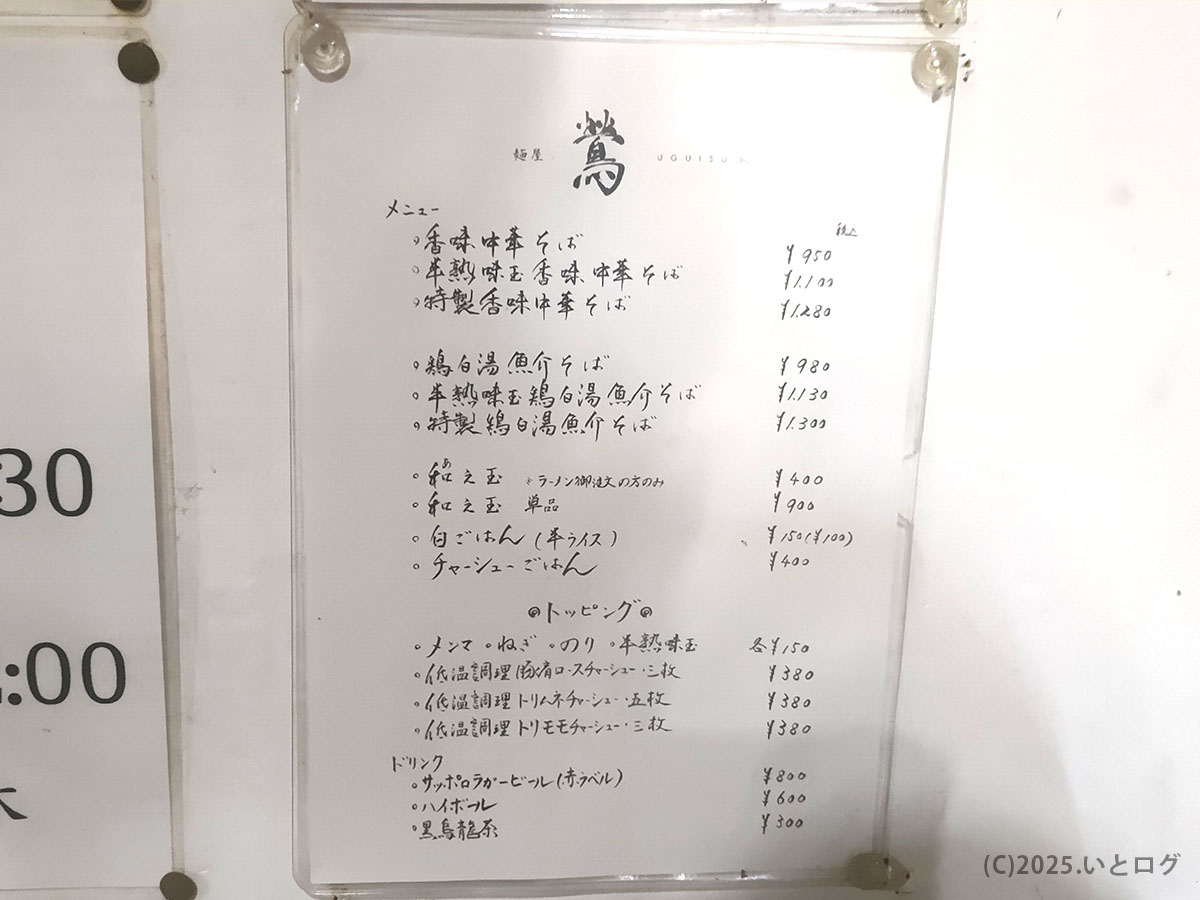 麺屋 鶯 UGUISU
メニュー
税込
香味中華そば ¥950
半熟味玉香味中華そば ¥1.100
特製香味中華そば ¥1.280
鶏白湯魚介そば ¥980
半熟味玉鶏白湯魚介そば ¥1.130
特製鶏白湯魚介そば ¥1.300
あ
和え玉 *ラーメン御注文の方のみ ¥400
和え玉 単品 ¥900
白ごはん(半ライス) ¥150(¥100)
チャーシューごはん ¥400
トッピング
・メンマ ・ねぎ ・のり ・半熟味玉 各¥150
・低温調理豚肩ロースチャーシュー・三枚 ¥380
・低温調理トリムネチャーシュー・五枚 ¥380
・低温調理トリモモチャーシュー・三枚 ¥380
ドリンク
・サッポロラガービール(赤ラベル) ¥800
・ハイボール ¥600
・黒烏龍茶 ¥300
30
:00
(C)2025.いとログ